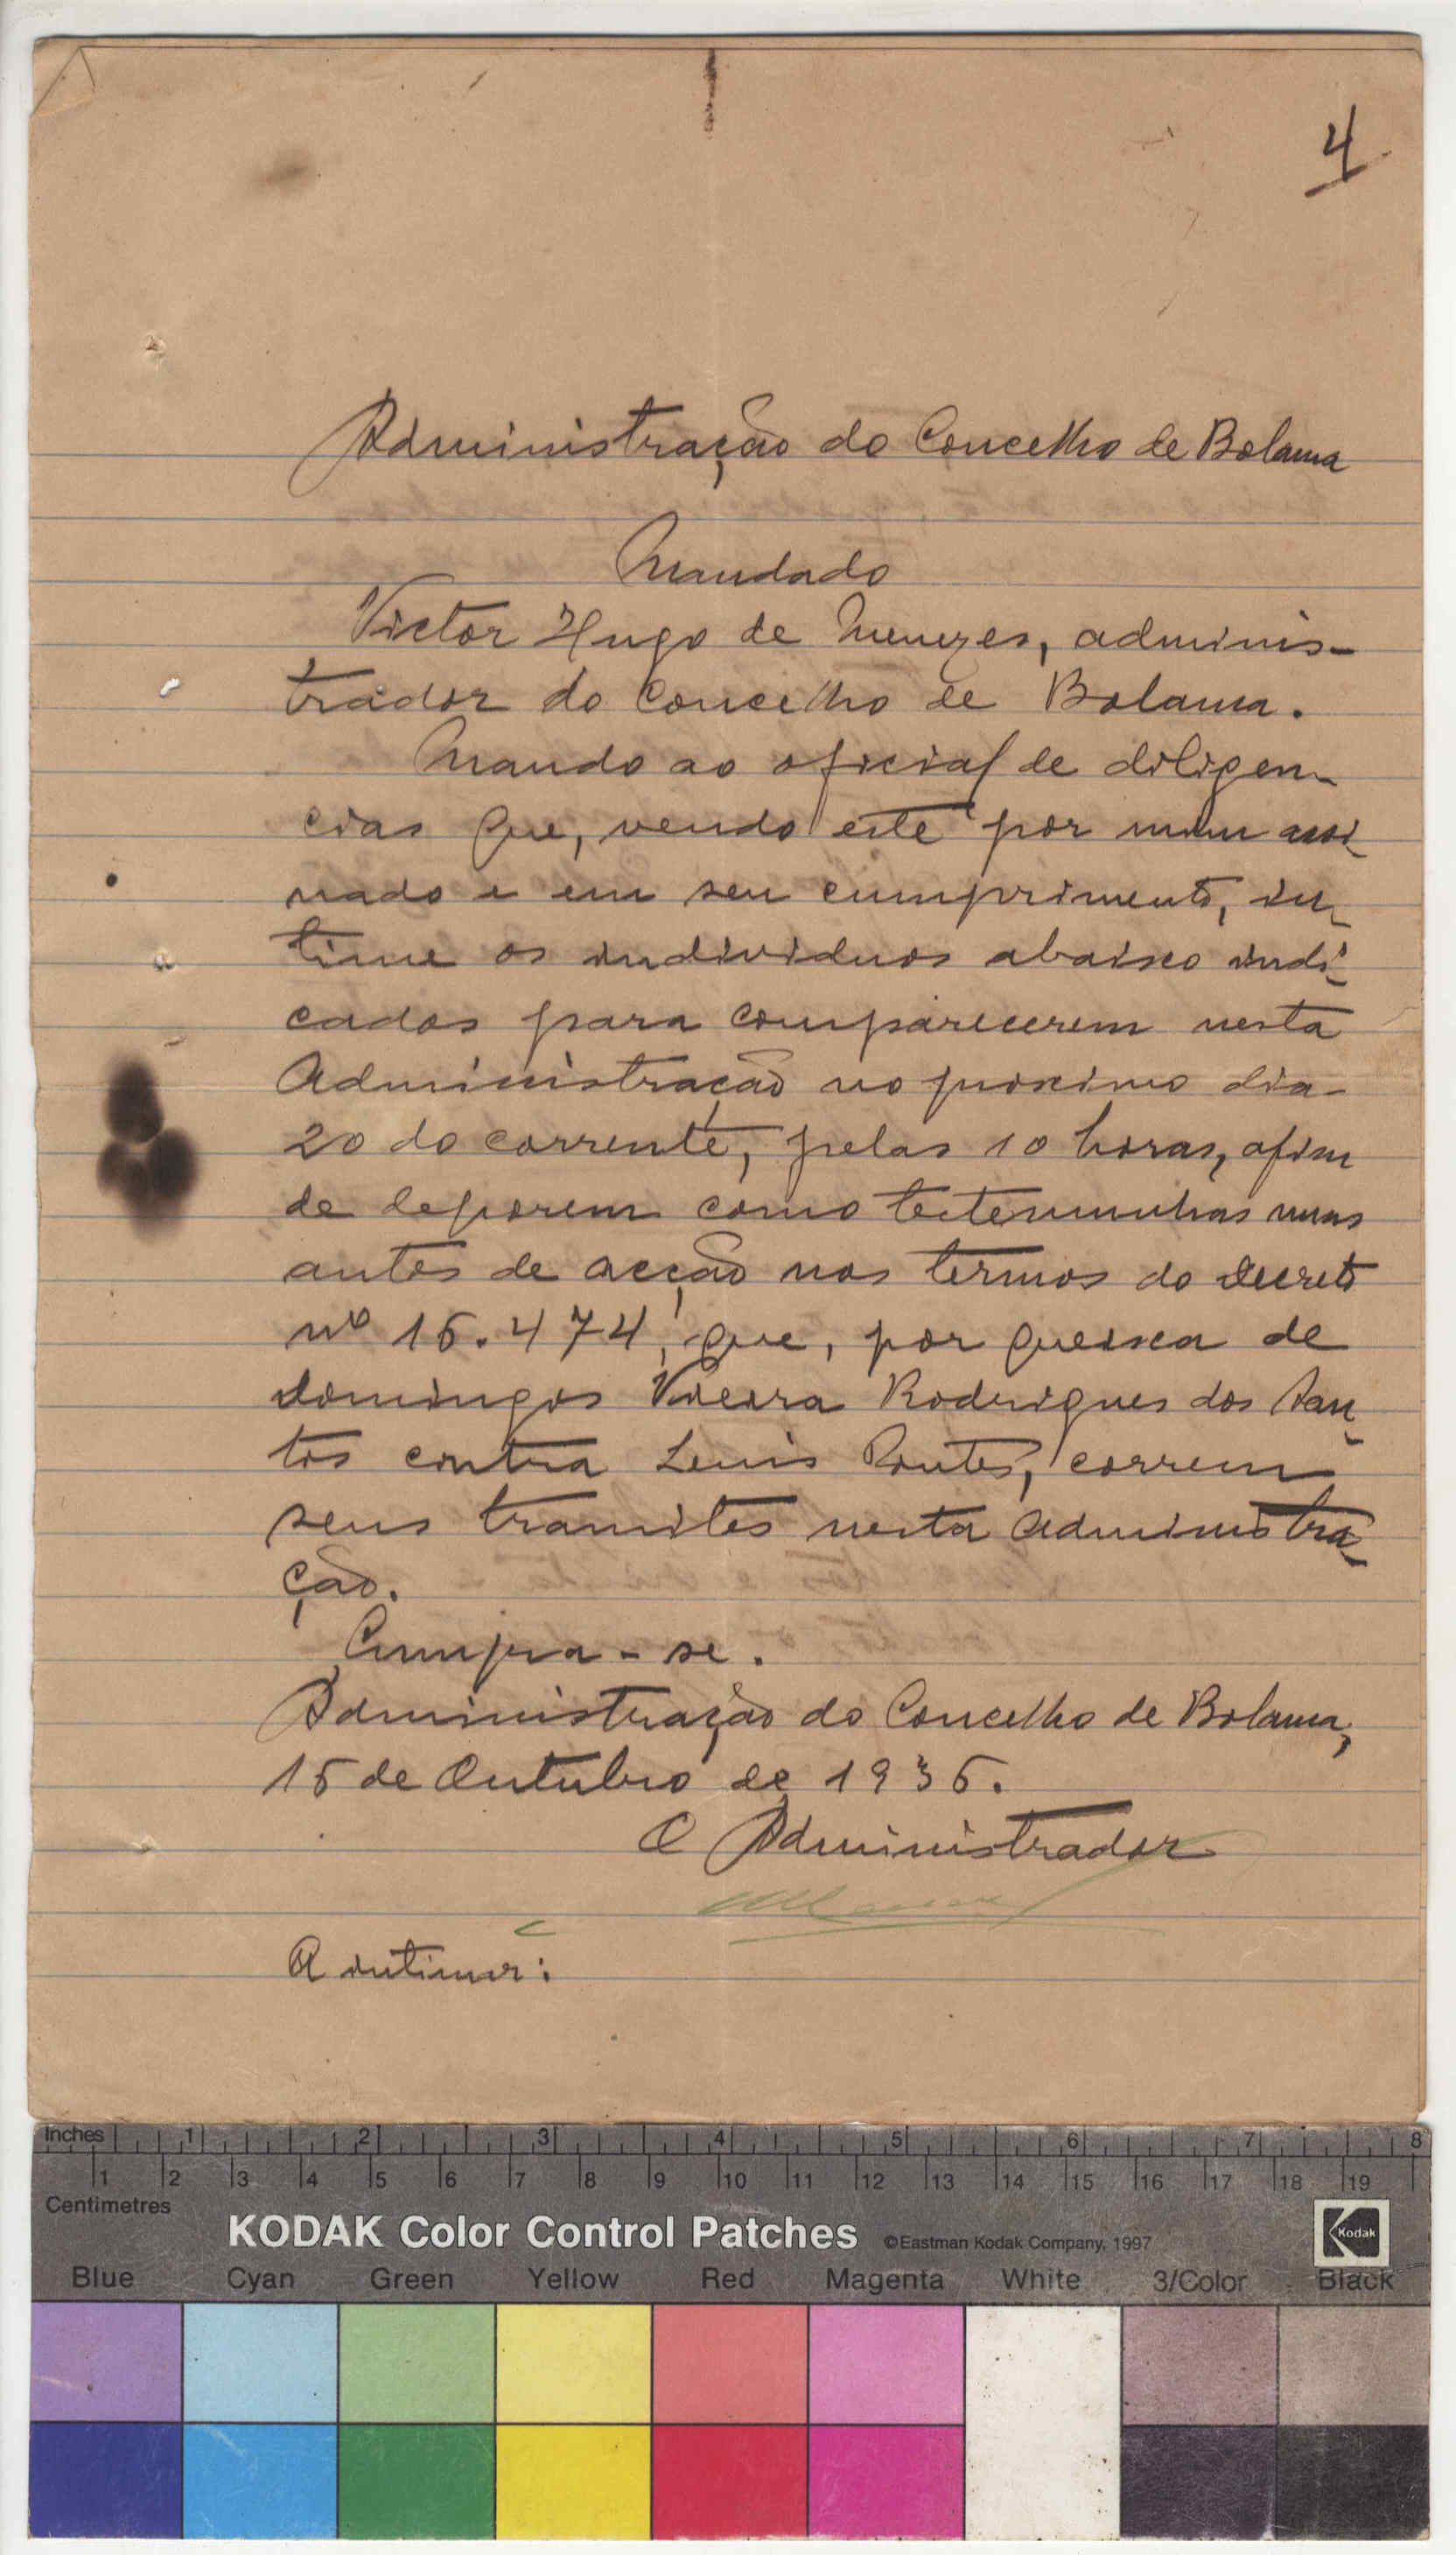 4
Administração do Concelho de Bolama
Mandado
Victor Hugo de Menezes, adminis-
trador do Concelho de Bolama.
Mando ao oficial de diligen-
cias que, vendo este por mim assi-
nado e em seu cumprimento, in-
time os individuos abaixo indi-
cados para comparecerem nesta
Administração no proximo dia
20 do corrente, pelas 10 horas, afim
de deporem como testemunhas nuns
autos de acção nos termos do Decreto
nº 16.474, que, por queixa de
Domingos Vieira Rodrigues dos San-
tos contra Luis Pontes, correm
seus tramites nesta Administra-
ção.
Cumpra-se.
Administração do Concelho de Bolama,
15 de Outubro de 1936.
O Administrador
A intimar:
Inches 1 2 3 4 5 6 7 8
1 2 3 4 5 6 7 8 9 10 11 12 13 14 15 16 17 18 19
Centimetres
KODAK Color Control Patches ©Eastman Kodak Company, 1997 Kodak
Blue Cyan Green Yellow Red Magenta White 3/Color Black